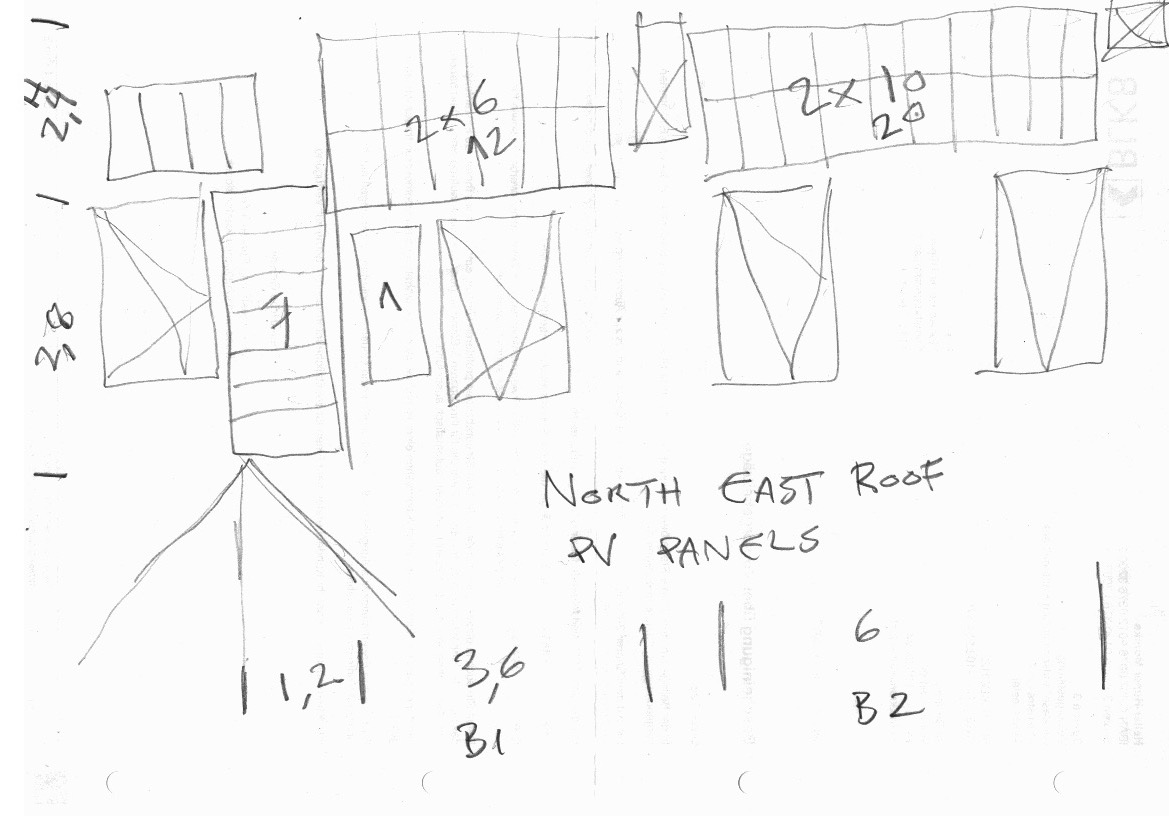 2,4
2 x 6
12
2 x 10
20
3,8
7
1
NORTH EAST ROOF
PV PANELS
1,2
3,6
B1
6
B2